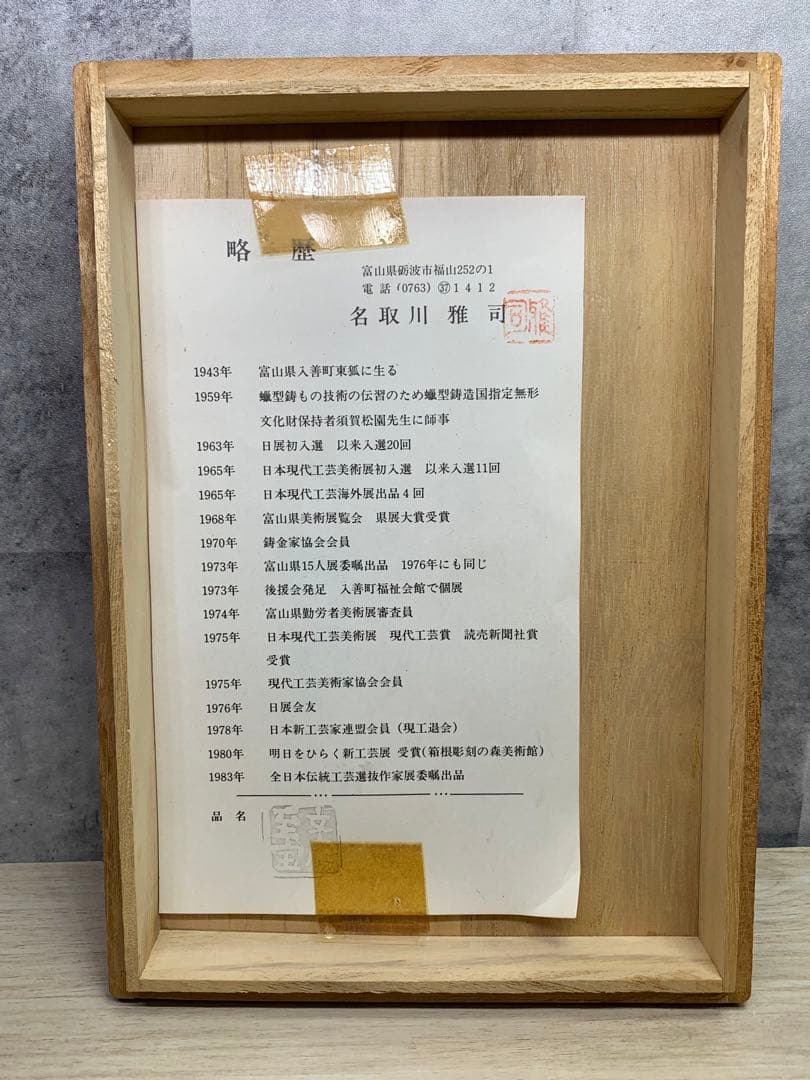 略歴
富山県砺波市福山252の1
電話(0763)㊲1412
名取川雅司
1943年 富山県入善町東狐に生る
1959年 蠟型鋳もの技術の伝習のため蠟型鋳造国指定無形
文化財保持者須賀松園先生に師事
1963年 日展初入選 以来入選20回
1965年 日本現代工芸美術展初入選 以来入選11回
1965年 日本現代工芸海外展出品4回
1968年 富山県美術展覧会 県展大賞受賞
1970年 鋳金家協会会員
1973年 富山県15人展委嘱出品 1976年にも同じ
1973年 後援会発足 入善町福祉会館で個展
1974年 富山県勤労者美術展審査員
1975年 日本現代工芸美術展 現代工芸賞 読売新聞社賞
受賞
1975年 現代工芸美術家協会会員
1976年 日展会友
1978年 日本新工芸家連盟会員(現工退会)
1980年 明日をひらく新工芸展 受賞(箱根彫刻の森美術館)
1983年 全日本伝統工芸選抜作家展委嘱出品
品名